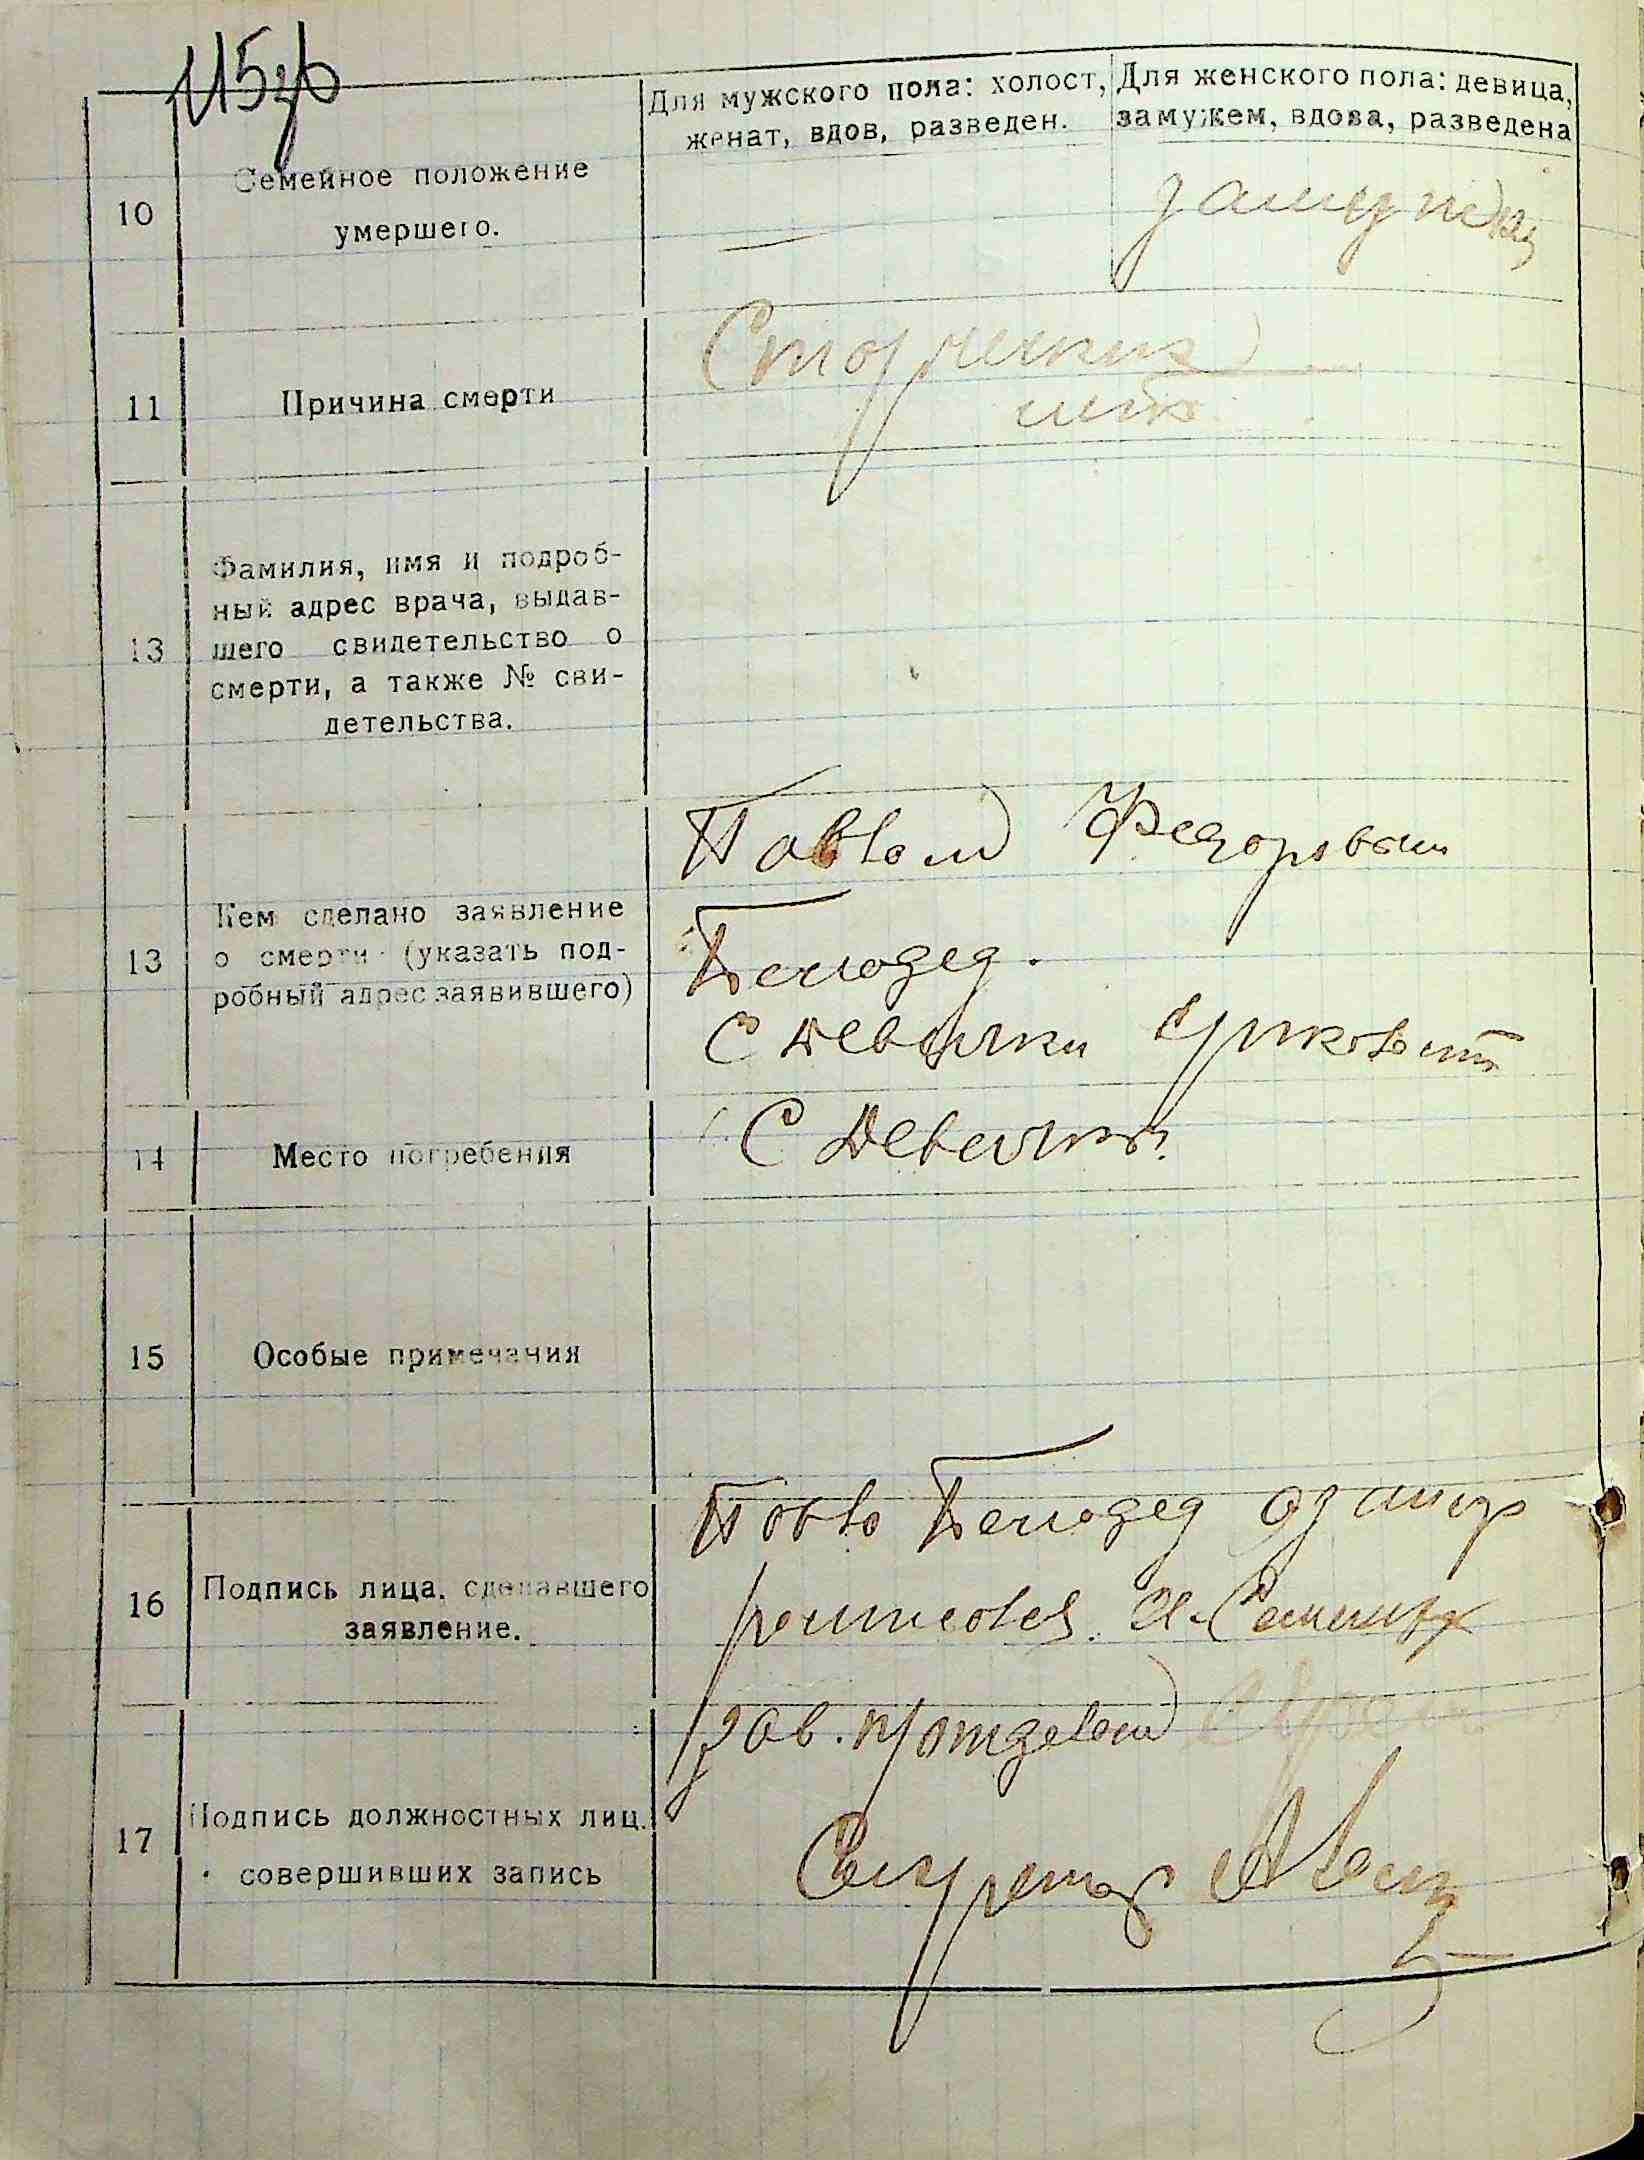 Для мужского пола: холост,
женат, вдов, разведен.
Для женского пола: девица,
замужем, вдова, разведена
10
Семейное положение
умершего.
—
замужня
11
Причина смерти
Старческих
лет
13
Фамилия, имя и подроб-
ный адрес врача, выдав-
шего свидетельство о
смерти, а также № сви-
детельства.
13
Кем сделано заявление
о смерти (указать под-
робный адрес заявившего)
Павлом Федоровым
Белодед.
С Девички
14
Место погребения
С Девички
15
Особые примечания
16
Подпись лица, сделавшего
заявление.
Павло Белодед
17
Подпись должностных лиц.
совершивших запись
Зав. п/отделом
Секретарь